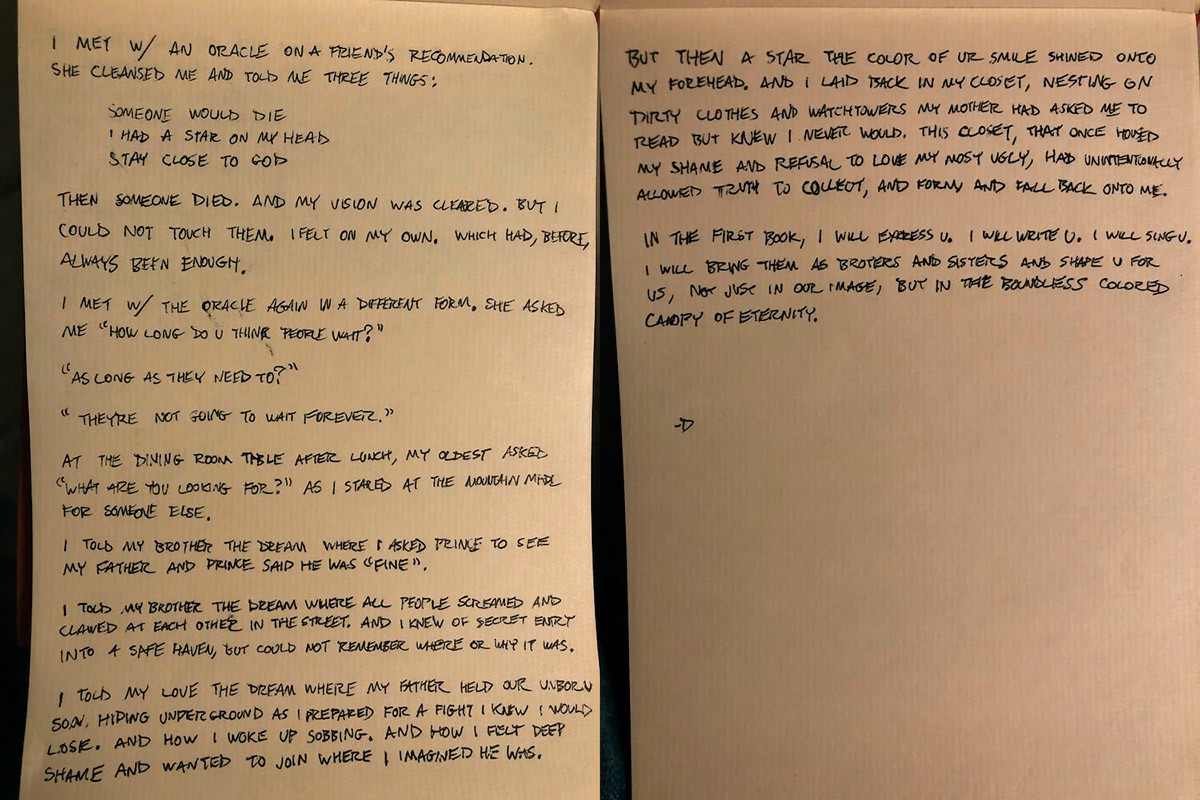 I MET W/ AN ORACLE ON A FRIEND'S RECOMMENDATION.
SHE CLEANSED ME AND TOLD ME THREE THINGS:
SOMEONE WOULD DIE
I HAD A STAR ON MY HEAD
STAY CLOSE TO GOD
THEN SOMEONE DIED. AND MY VISION WAS CLEARED. BUT I
COULD NOT TOUCH THEM. I FELT ON MY OWN. WHICH HAD, BEFORE,
ALWAYS BEEN ENOUGH.
I MET W/ THE ORACLE AGAIN IN A DIFFERENT FORM. SHE ASKED
ME "HOW LONG DO U THINK PEOPLE WAIT?"
"AS LONG AS THEY NEED TO?"
"THEY'RE NOT GOING TO WAIT FOREVER."
AT THE DINING ROOM TABLE AFTER LUNCH, MY OLDEST ASKED
"WHAT ARE YOU LOOKING FOR?" AS I STARED AT THE MOUNTAIN MADE
FOR SOMEONE ELSE.
I TOLD MY BROTHER THE DREAM WHERE I ASKED PRINCE TO SEE
MY FATHER AND PRINCE SAID HE WAS "FINE".
I TOLD MY BROTHER THE DREAM WHERE ALL PEOPLE SCREAMED AND
CLAWED AT EACH OTHER IN THE STREET. AND I KNEW OF SECRET ENTRY
INTO A SAFE HAVEN, BUT COULD NOT REMEMBER WHERE OR WHY IT WAS.
I TOLD MY LOVE THE DREAM WHERE MY FATHER HELD OUR UNBORN
SON, HIDING UNDERGROUND AS I PREPARED FOR A FIGHT I KNEW I WOULD
LOSE. AND HOW I WOKE UP SOBBING. AND HOW I FELT DEEP
SHAME AND WANTED TO JOIN WHERE I IMAGINED HE WAS.
BUT THEN A STAR THE COLOR OF UR SMILE SHINED ONTO
MY FOREHEAD. AND I LAID BACK IN MY CLOSET, NESTING ON
DIRTY CLOTHES AND WATCHTOWERS MY MOTHER HAD ASKED ME TO
READ BUT KNEW I NEVER WOULD. THIS CLOSET, THAT ONCE HOUSED
MY SHAME AND REFUSAL TO LOVE MY MOST UGLY, HAD UNINTENTIONALLY
ALLOWED TRUTH TO COLLECT, AND FORM AND FALL BACK ONTO ME.
IN THE FIRST BOOK, I WILL EXPRESS U. I WILL WRITE U. I WILL SING U.
I WILL BRING THEM AS BROTERS AND SISTERS AND SHAPE U FOR
US, NOT JUST IN OUR IMAGE, BUT IN THE BOUNDLESS COLORED
CANOPY OF ETERNITY.
-D